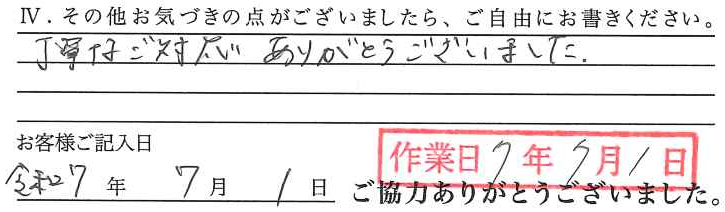 Ⅳ．その他お気づきの点がございましたら、ご自由にお書きください。
丁寧なご対応 ありがとうございました.
お客様ご記入日
作業日 7年7月1日
令和7年 7月 1日
ご協力ありがとうございました。